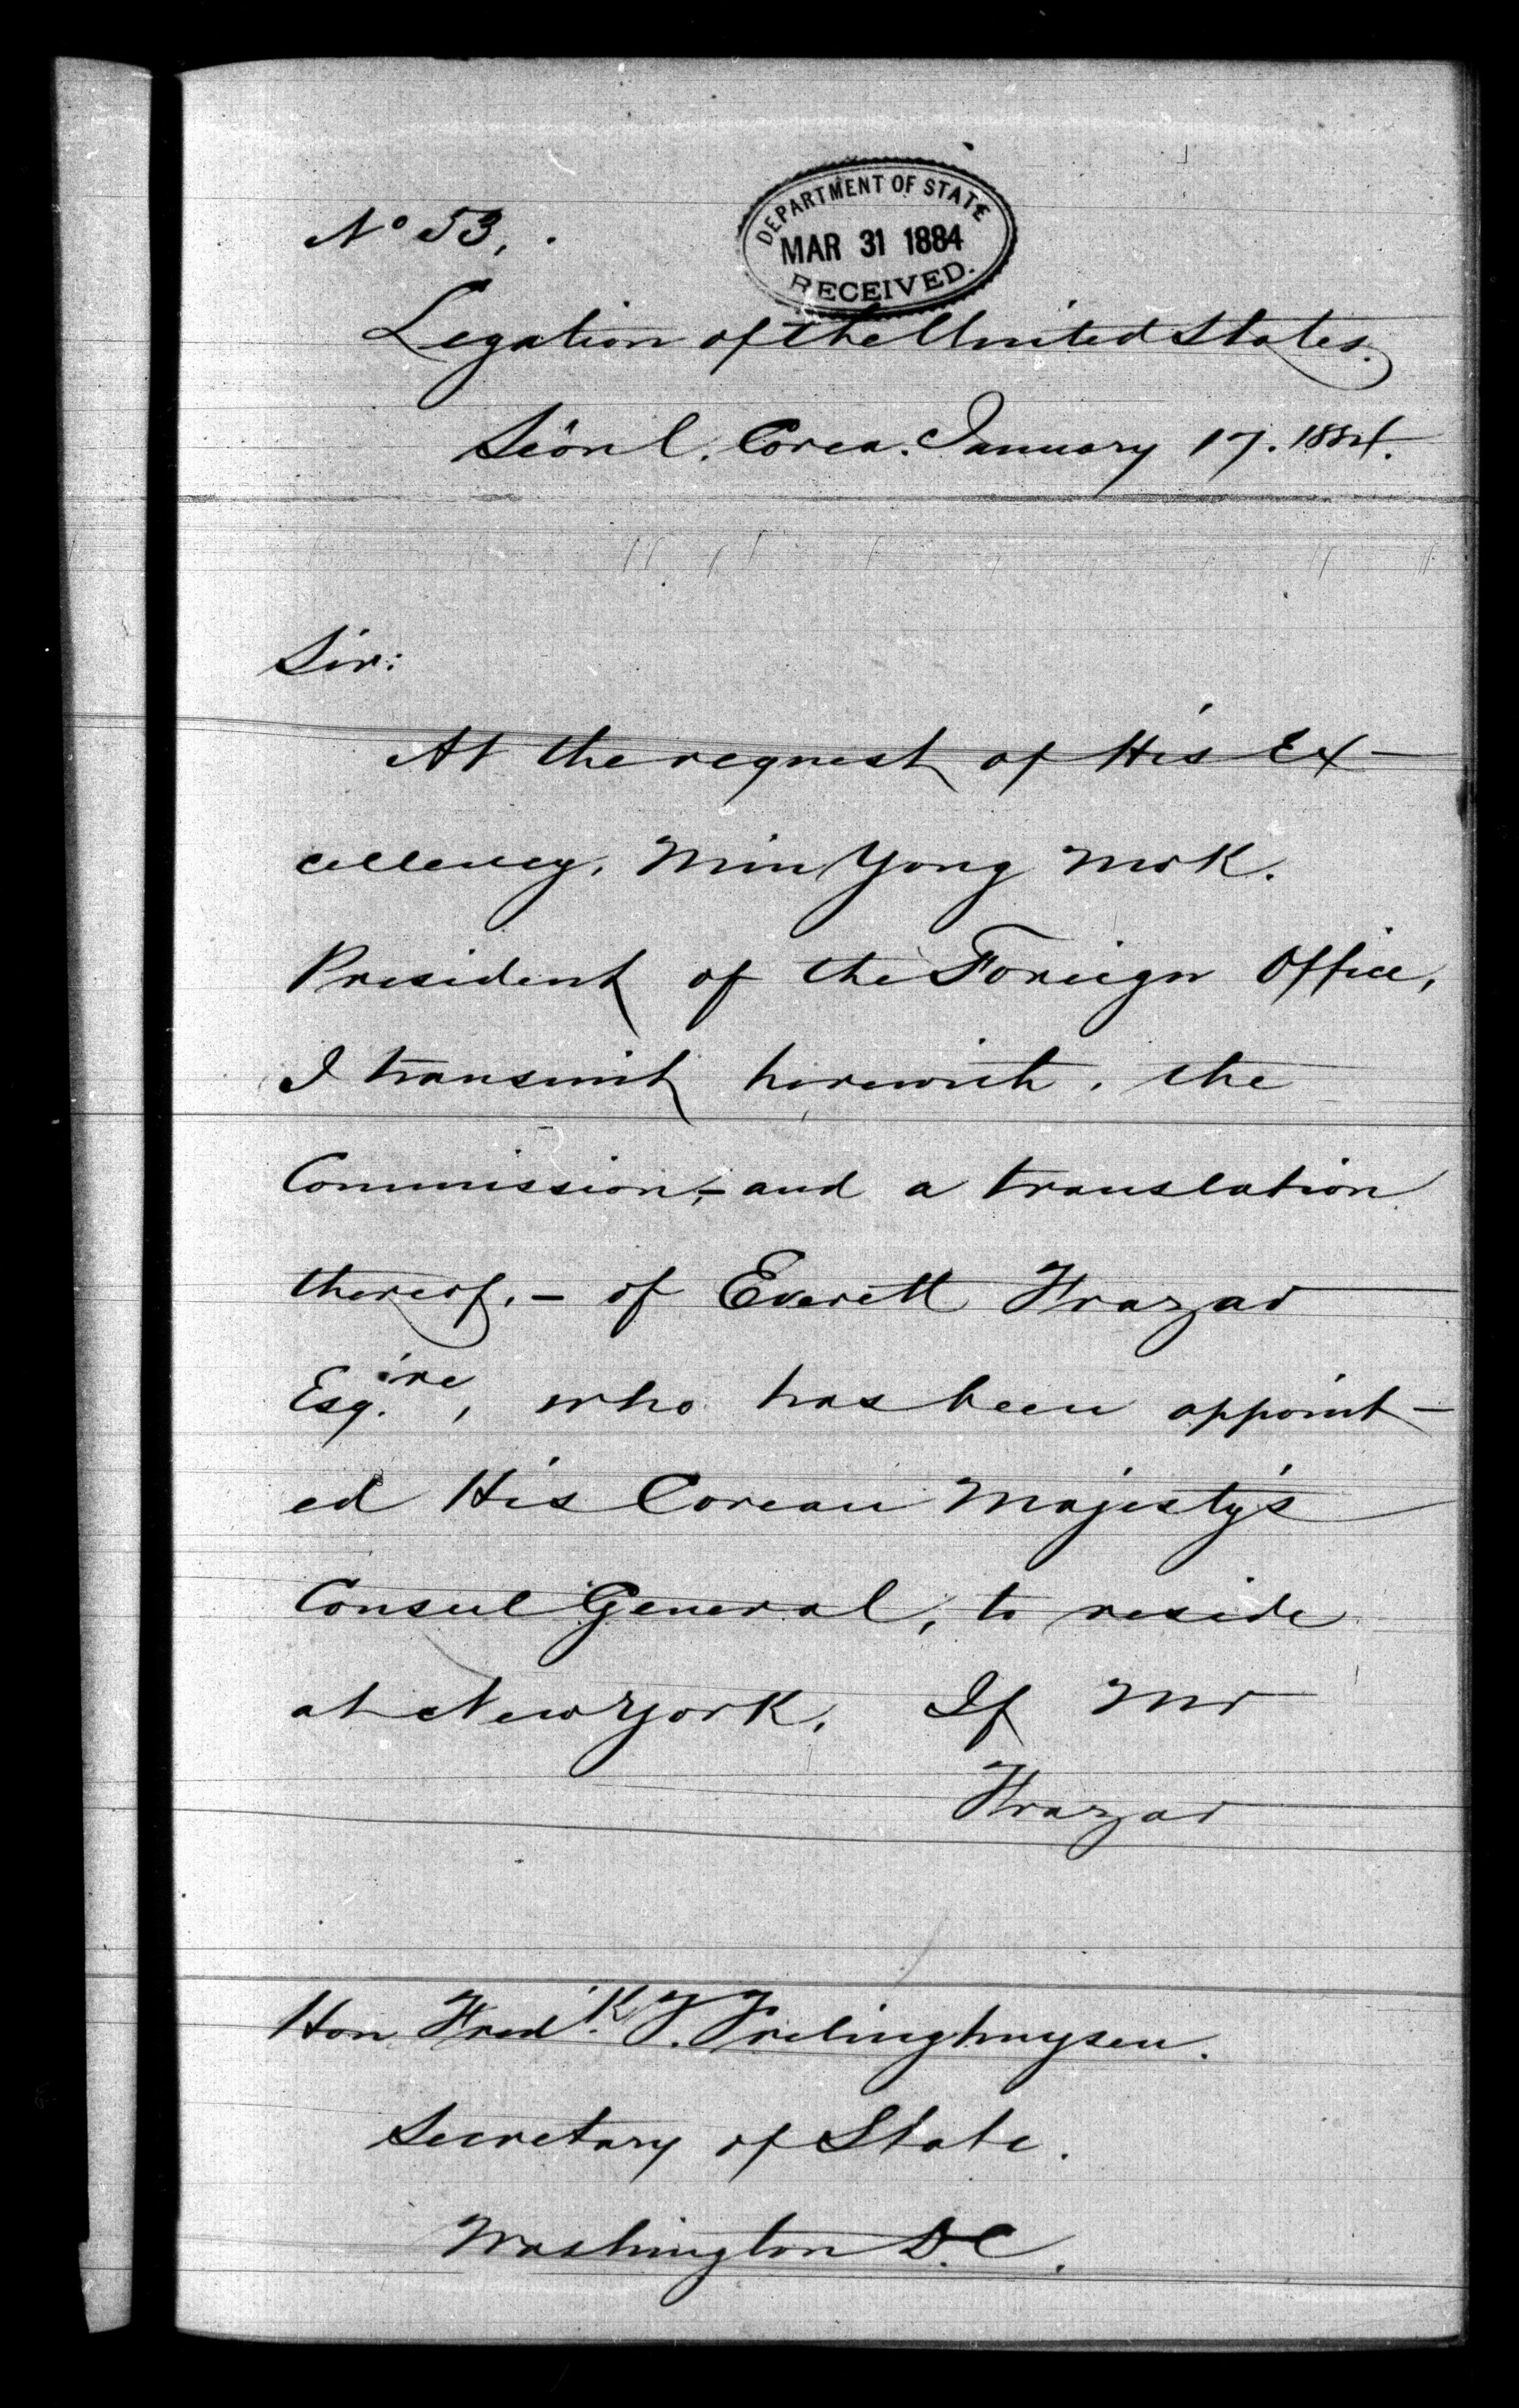 Nº 53.
DEPARTMENT OF STATE
MAR 31 1884
RECEIVED.
Legation of the United States.
Séoul. Corea. January 17. 1884.
Sir:
At the request of His Ex-
cellency, Min Yong Mok.
President of the Foreign Office,
I transmit herewith, the
Commission,- and a translation
thereof,- of Everett Frazar
Esq.ire, who has been appoint-
ed His Corean Majesty's
Consul General, to reside
at New York. If Mr
Frazar
Hon Fred.k T. Frelinghuysen.
Secretary of State.
Washington D.C.